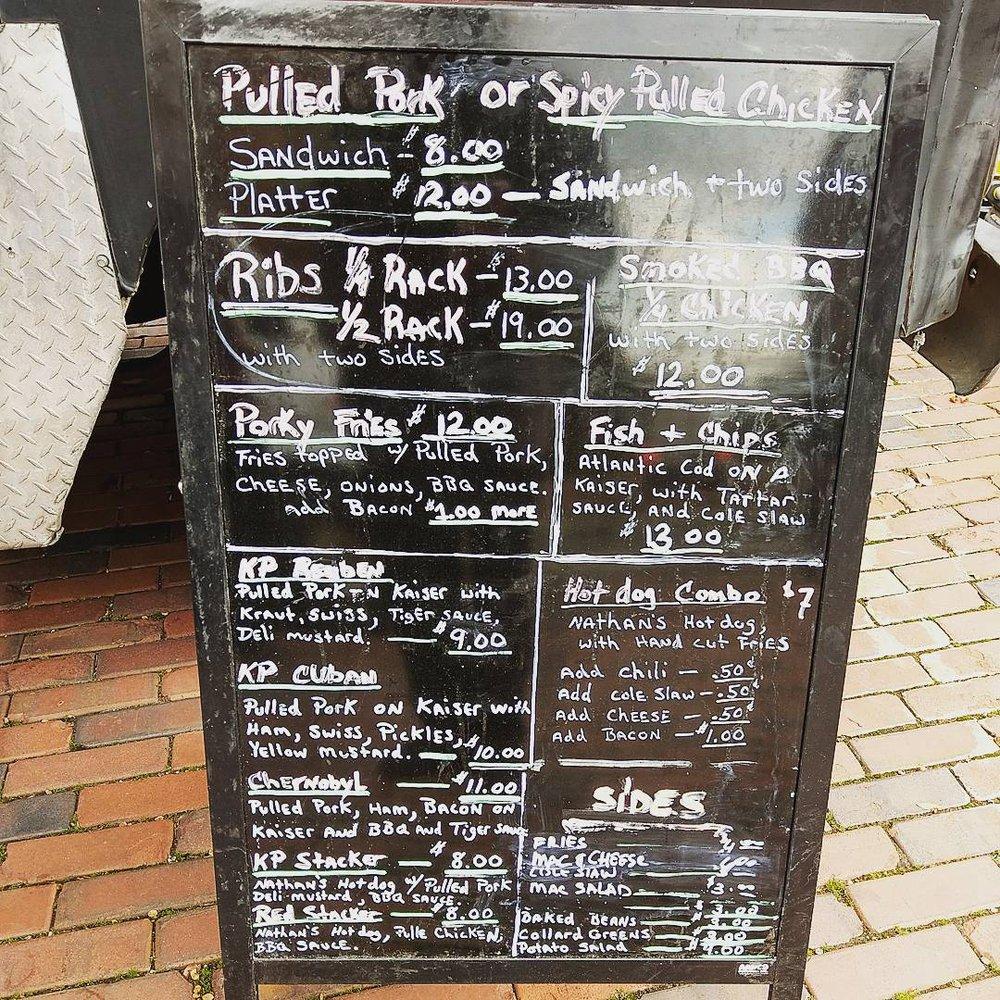 Pulled Pork or Spicy Pulled Chicken
Sandwich - $8.00
Platter $12.00 — Sandwich + two Sides
Ribs 1/4 Rack - $13.00
1/2 Rack - $19.00
with two sides
Smoked BBQ
1/4 Chicken
with two sides
$12.00
Porky Fries $12.00
Fries topped w/ Pulled Pork,
Cheese, onions, BBQ sauce.
add Bacon $1.00 more
Fish + Chips
Atlantic Cod on a
Kaiser, with Tartar
sauce, and Cole Slaw
$13.00
KP Reuben
Pulled Pork-N Kaiser with
Kraut, swiss, Tiger sauce,
Deli mustard. — $9.00
KP Cuban
Pulled Pork on Kaiser with
Ham, Swiss, Pickles,
Yellow Mustard. — $10.00
Chernobyl — $11.00
Pulled Pork, Ham, Bacon on
Kaiser and BBQ and Tiger Sauce
KP Stacker — $8.00
Nathan's Hotdog w/ Pulled Pork
Deli-mustard, BBQ sauce.
Red Stacker — $8.00
Nathan's Hotdog, Pulle Chicken,
BBQ sauce.
Hot dog Combo $7
Nathan's Hot dog,
with Hand cut Fries
Add chili — .50¢
Add cole slaw — .50¢
Add Cheese — .50¢
Add Bacon — $1.00
SIDES
Fries
Mac & Cheese
Cole Slaw
Mac Salad — $3.00
Baked Beans
Collard Greens
Potato Salad